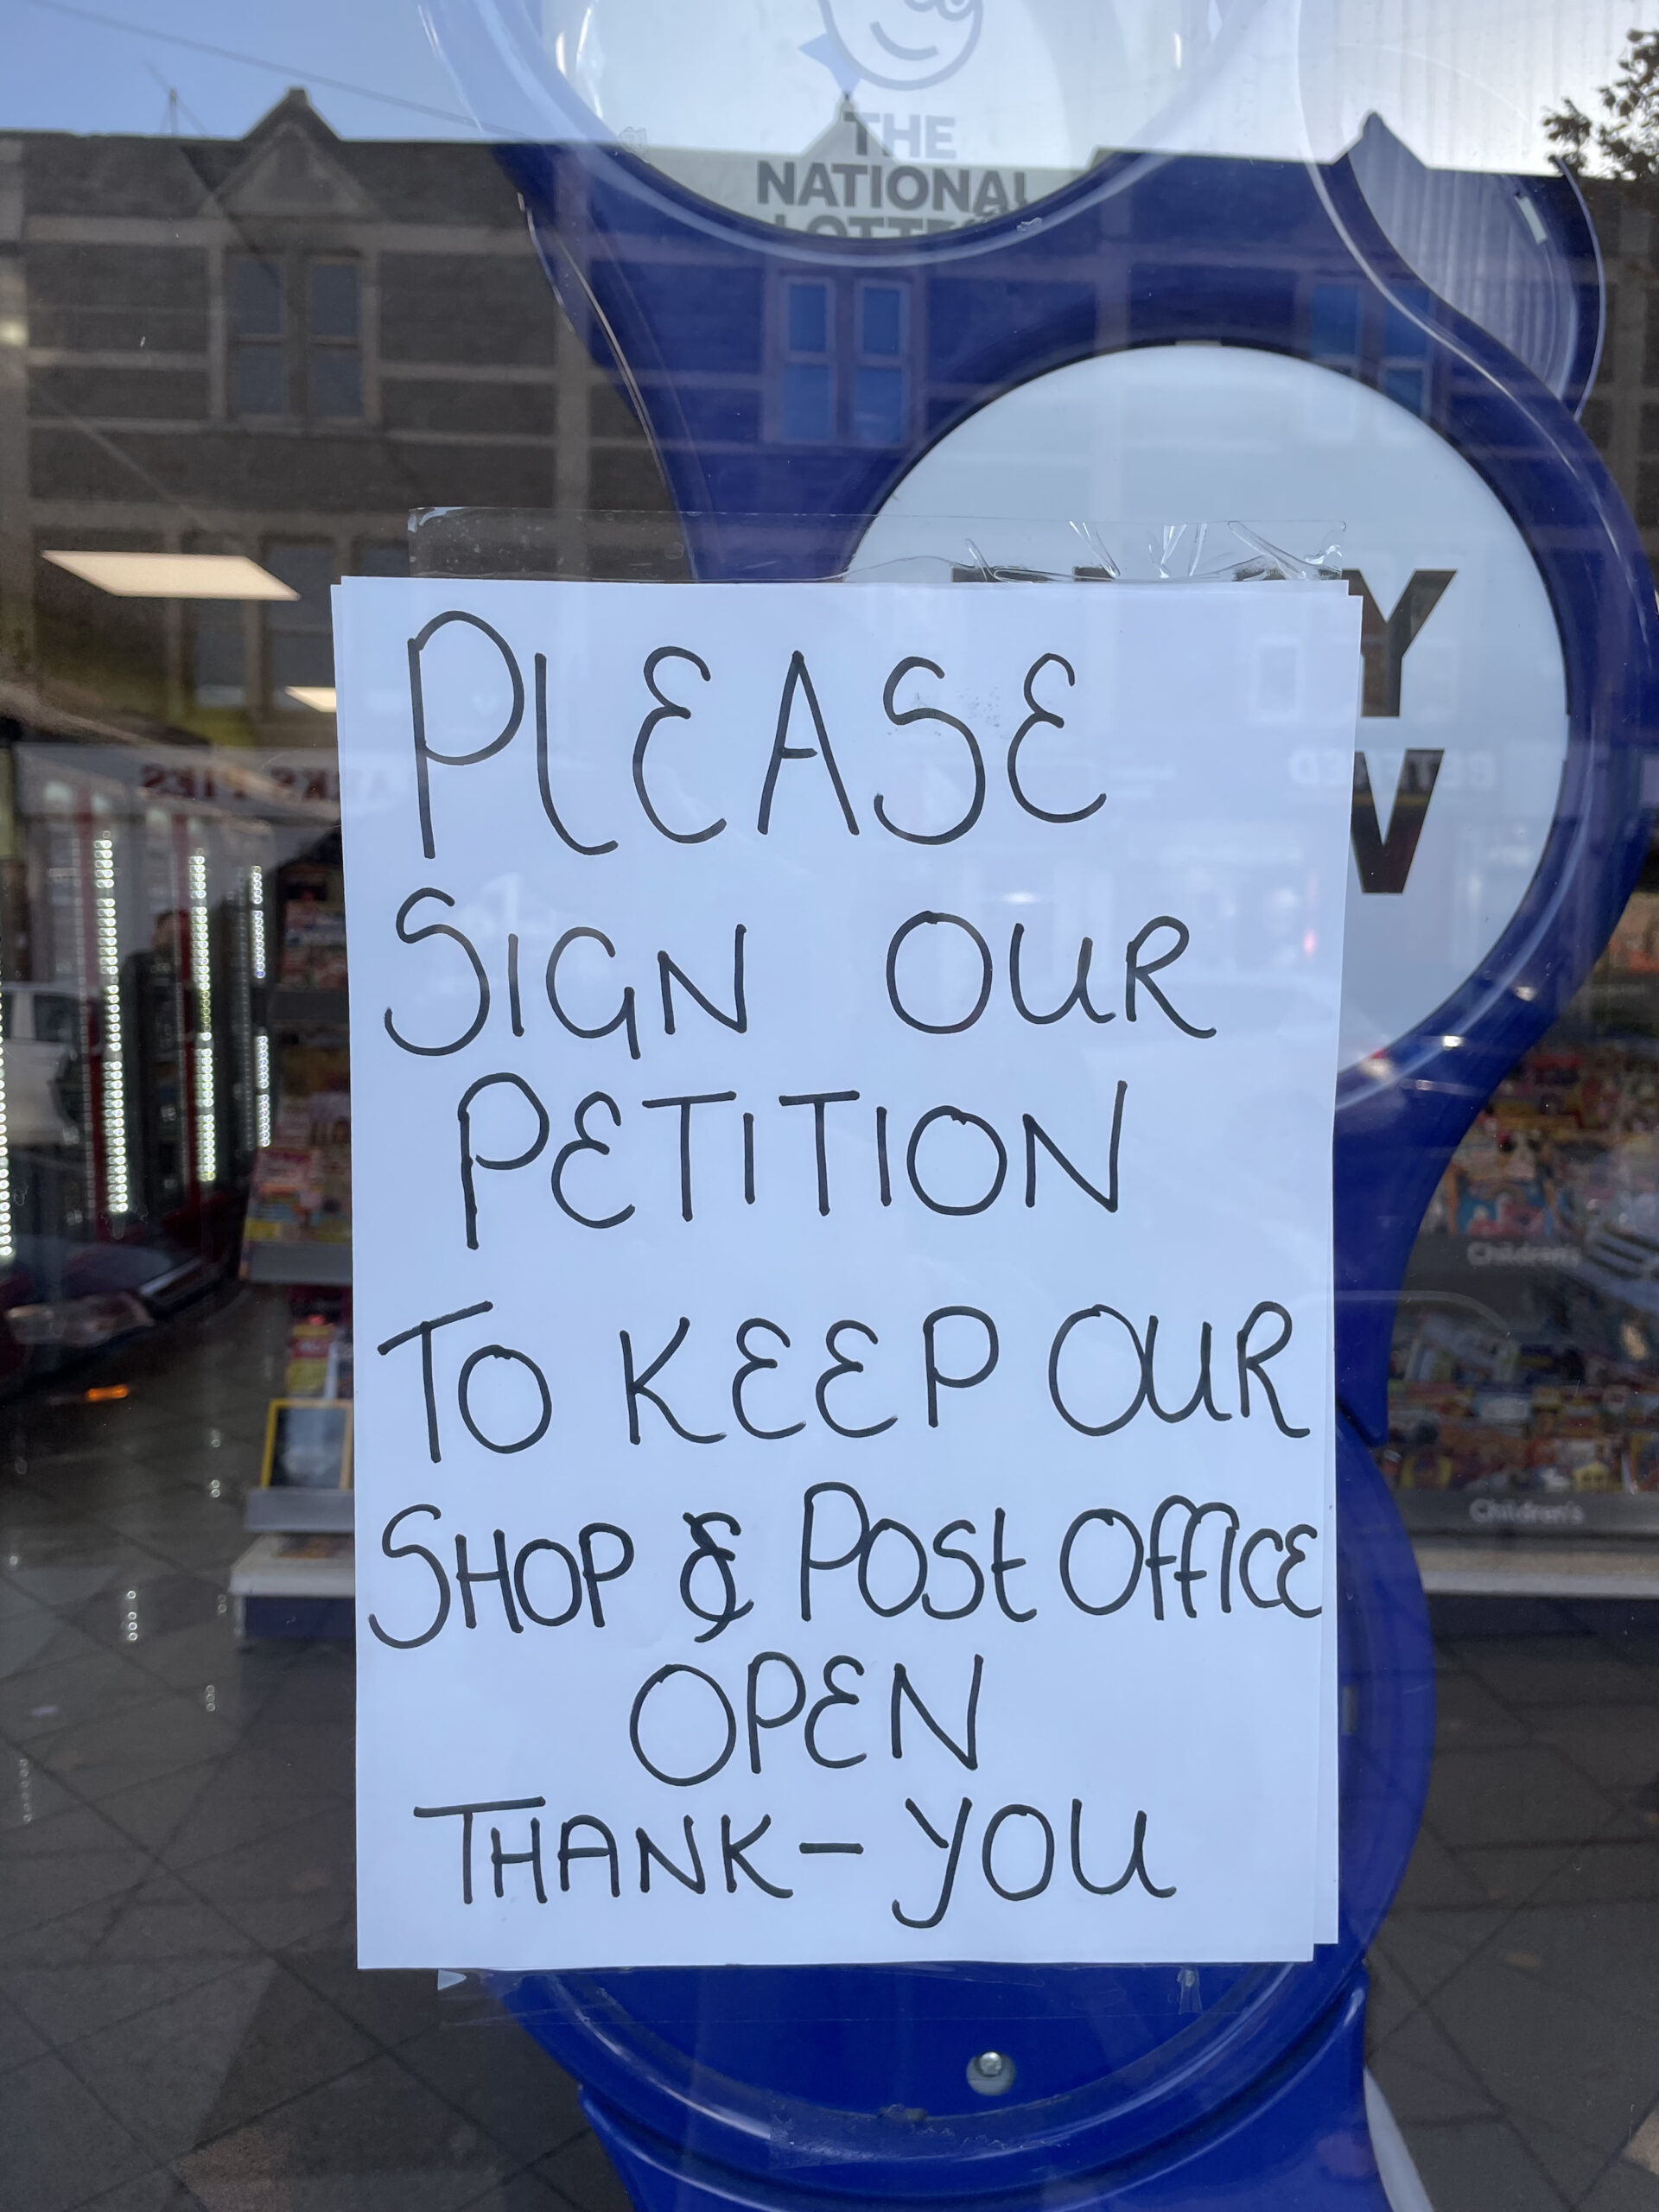 THE
NATIONAL
LOTTERY
PLEASE
SIGN OUR
PETITION
TO KEEP OUR
SHOP & POST OFFICE
OPEN
THANK-YOU
Y
W
Children's
Children's